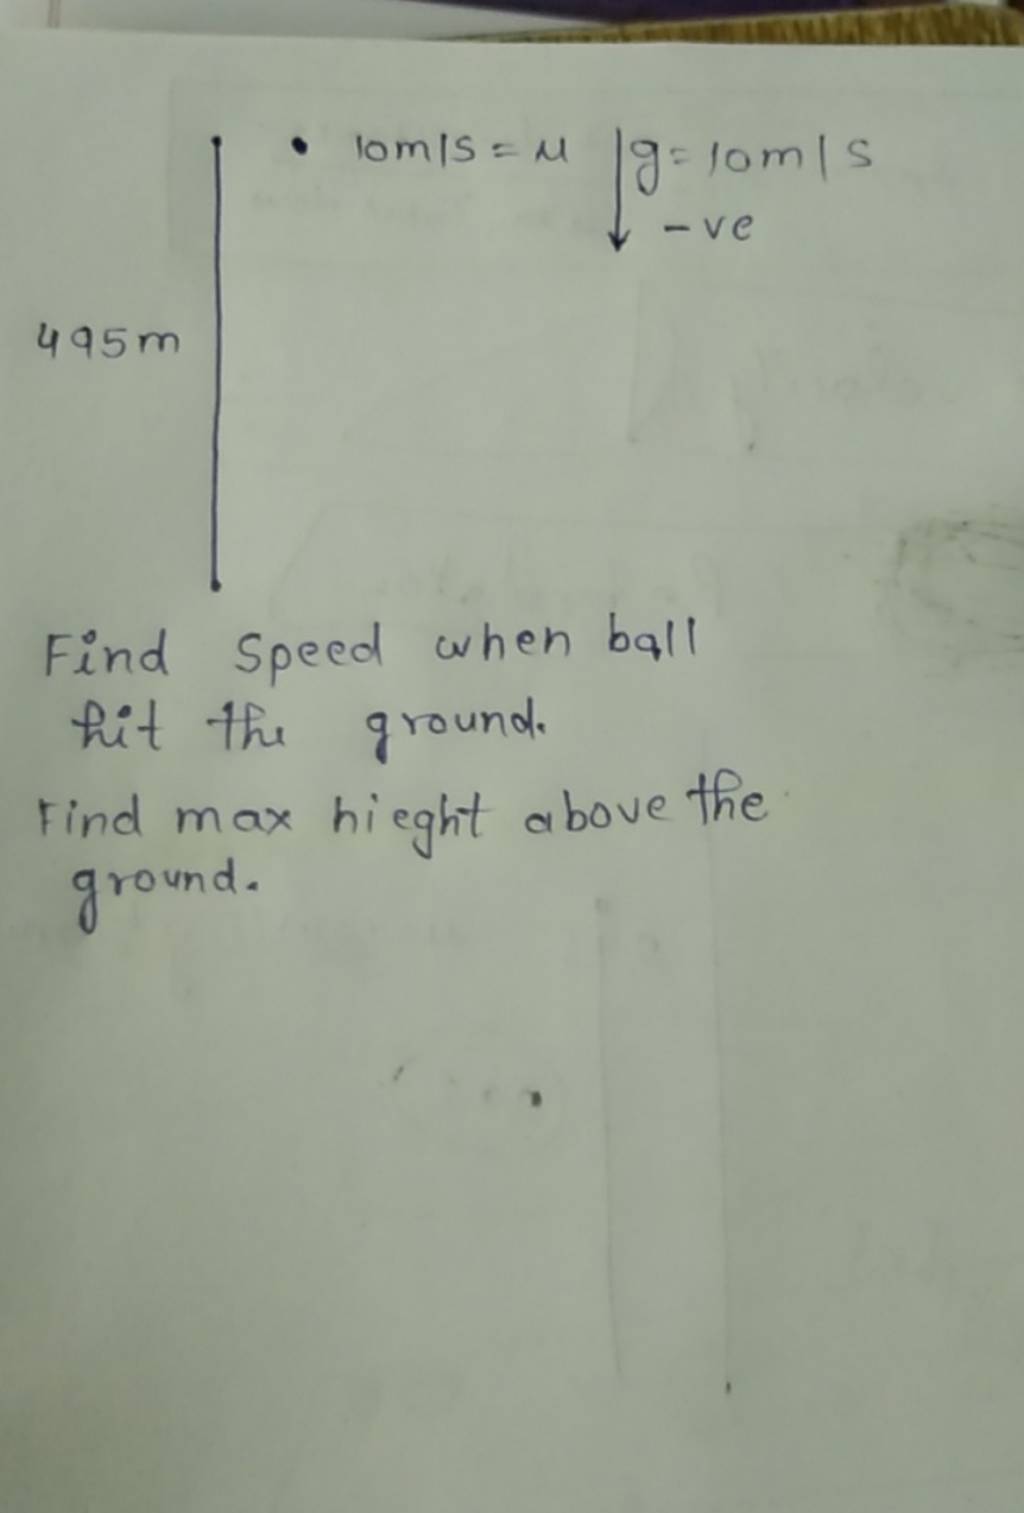 10m/s = u g = 10m/s
-ve
495m
Find speed when ball
hit the ground.
Find max hieght above the
ground.